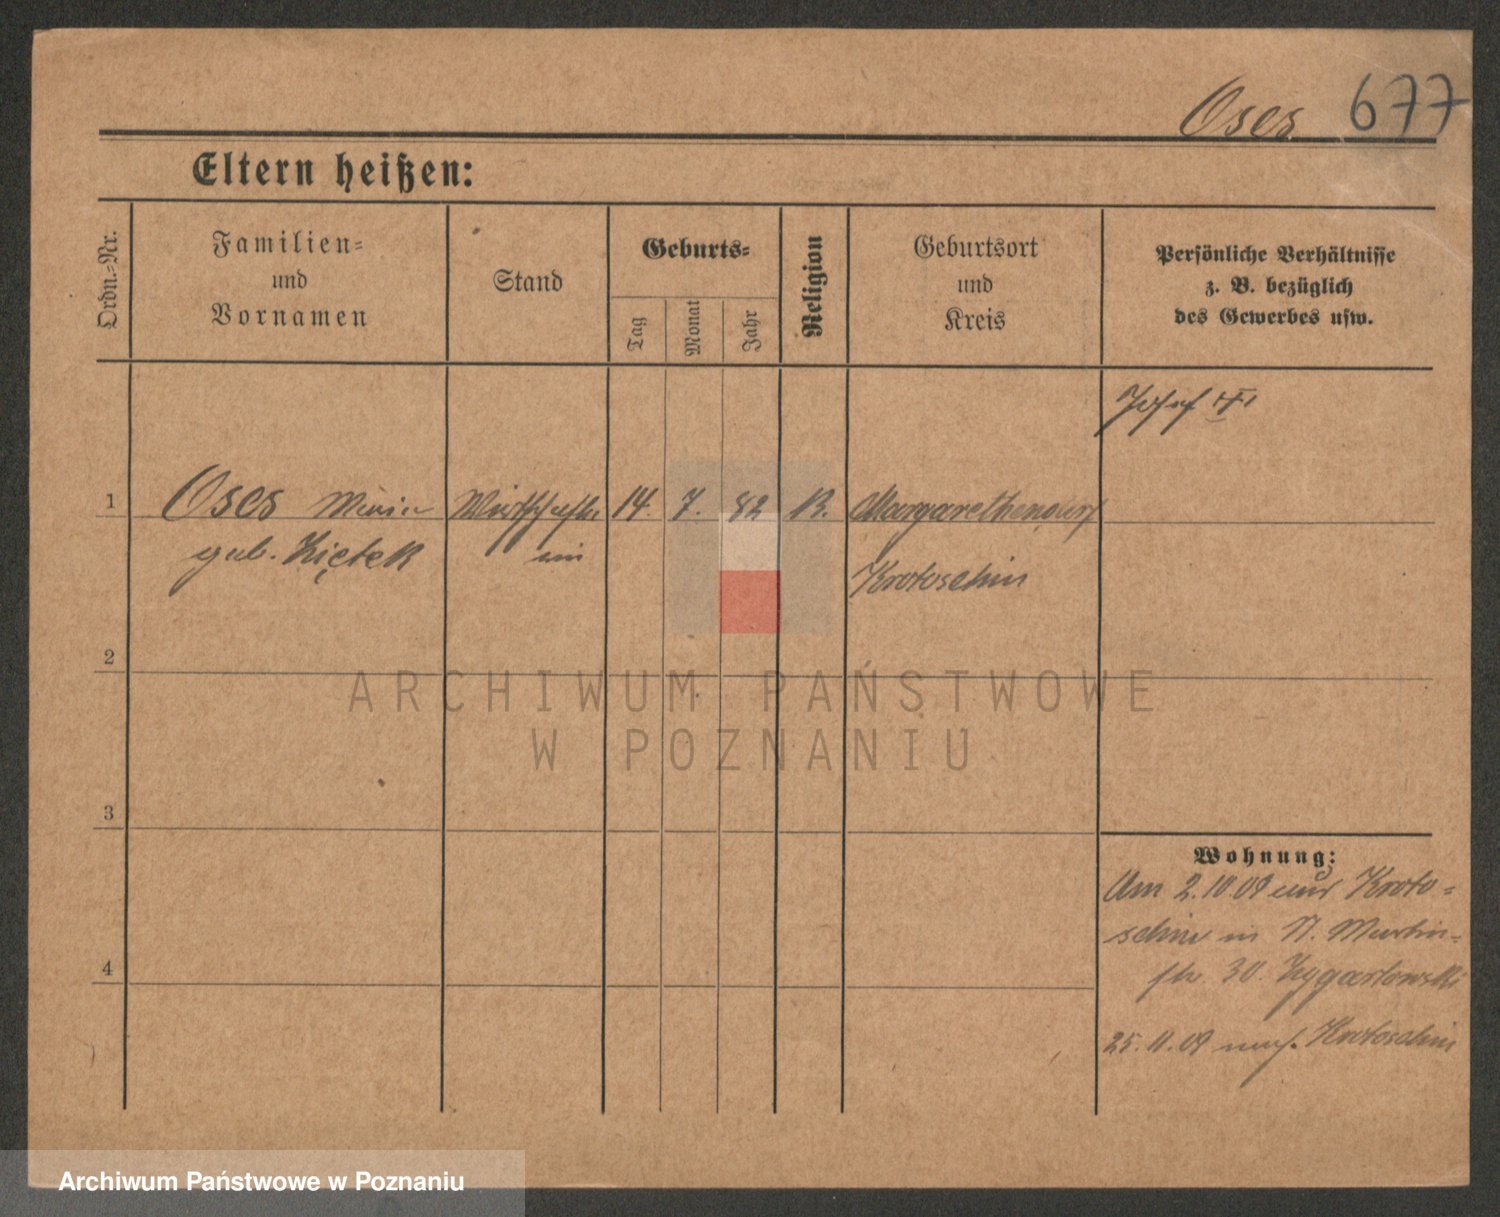 Oses 677
Eltern heißen:
Ordn.-Nr.
Familien-
und
Vornamen
Stand
Geburts-
Tag
Monat
Jahr
Religion
Geburtsort
und
Kreis
Persönliche Verhältnisse
z. B. bezüglich
des Gewerbes usw.
Josef
1 Oses Maria Wirtschafts 14. 7. 82 K. Margarethendorf
geb. Ziętek in Krotoschin
2
3
4
Wohnung:
Am 2.10.09 aus Kroto-
schin in St. Martin-
str. 30. Zygartowski
25.11.09 nach Krotoschin
ARCHIWUM PAŃSTWOWE
W POZNANIU
Archiwum Państwowe w Poznaniu